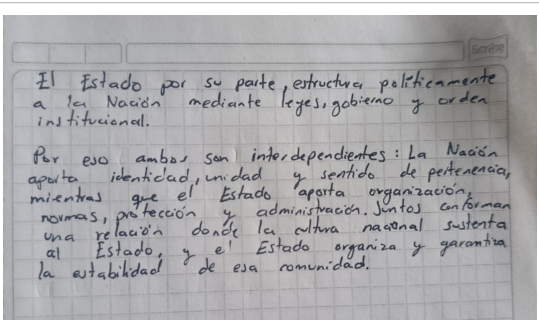 Scribe
El Estado por su parte, estructura políticamente
a la Nación mediante leyes, gobierno y orden
institucional.
Por eso ambos son interdependientes: La Nación
aporta identidad, unidad y sentido de pertenencia,
mientras que el Estado aporta organización,
normas, protección y administración. Juntos conforman
una relación donde la cultura nacional sustenta
al Estado, y el Estado organiza y garantiza
la estabilidad de esa comunidad.